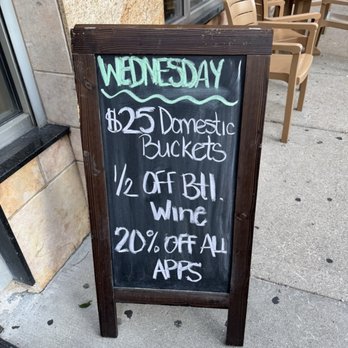 WEDNESDAY
$25 Domestic
Buckets
1/2 OFF Btl.
Wine
20% OFF ALL
APPS